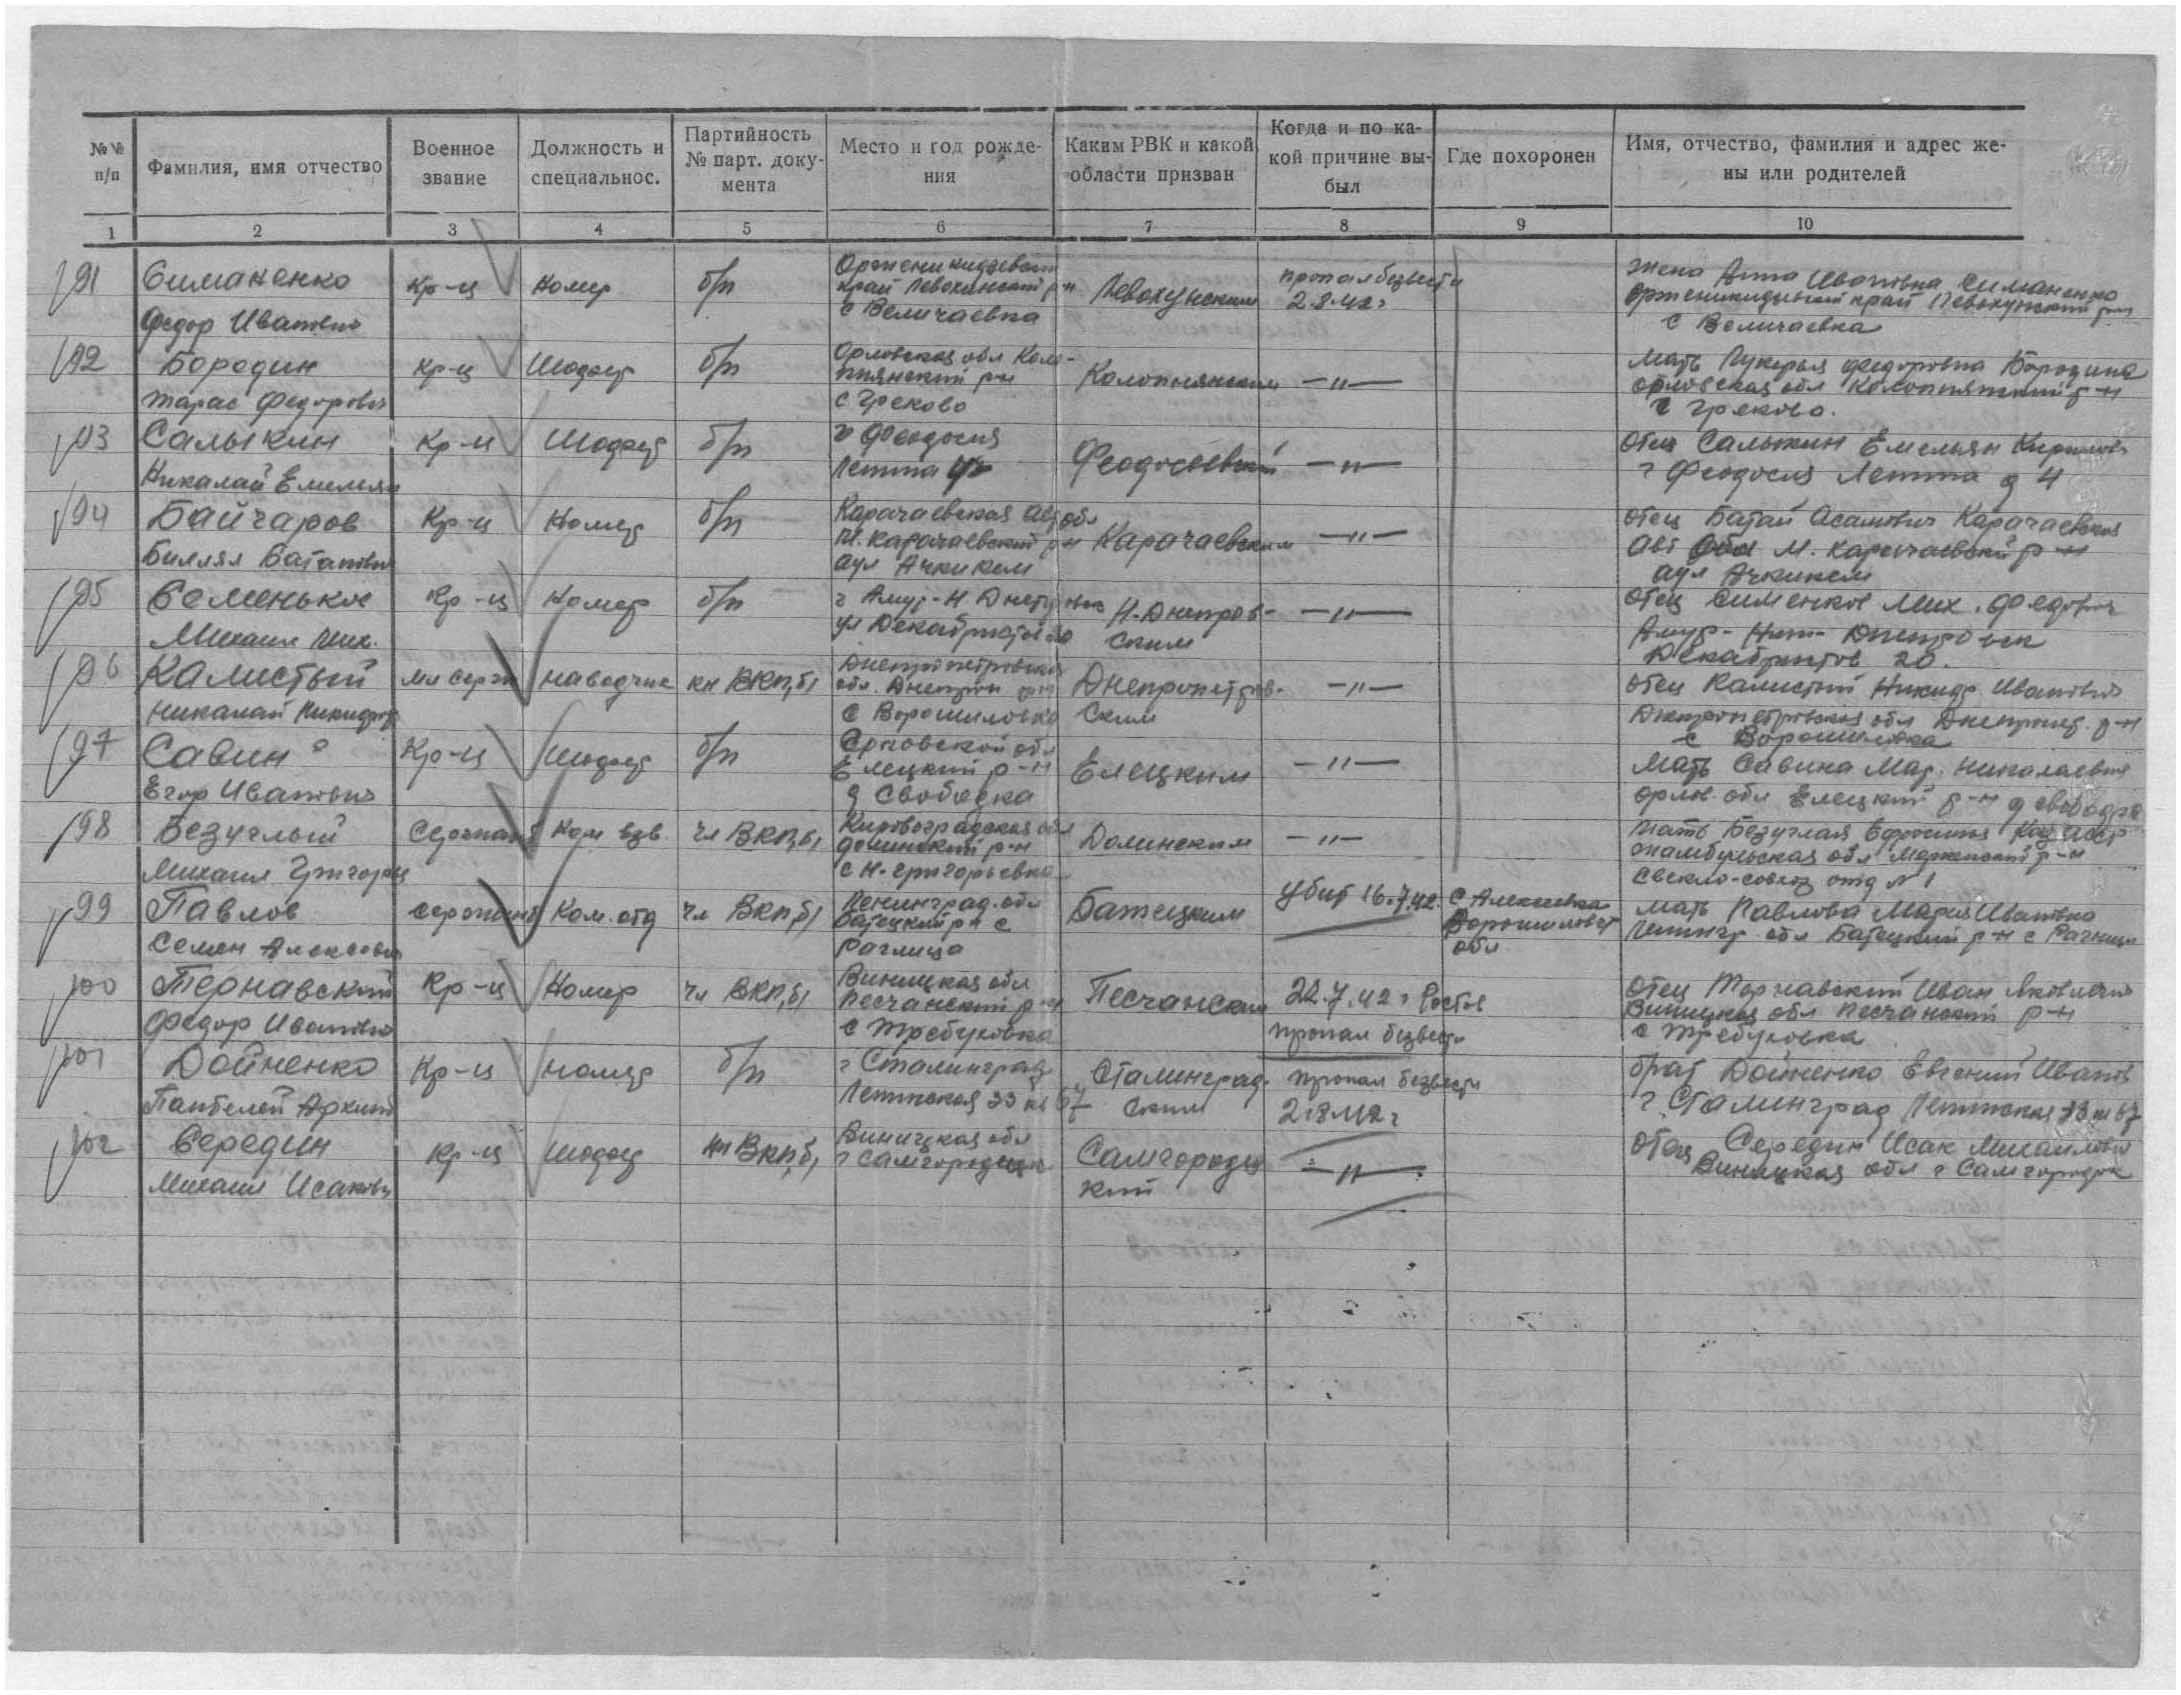 №№ п/п
Фамилия, имя отчество
Военное звание
Должность и специальнос.
Партийность № парт. документа
Место и год рождения
Каким РВК и какой области призван
Когда и по какой причине выбыл
Где похоронен
Имя, отчество, фамилия и адрес жены или родителей
1 2 3 4 5 6 7 8 9 10
91 Симаненко Кр-ц Номер б/п Орженикидзевский Левокумским пропал безвести жена Анна Ивановна Симаненко
край Левокумский р-н 2.8.42 г Орженикидзевский край Левокумский р-н
Федор Иванович с Величаевка с Величаевка
92 Бородин Кр-ц Шофер б/п Орловская обл Коло- Колопнянским —"— мать Лукерья Федоровна Бородина
пнянский р-н орловская обл Колопнянский р-н
Тарас Федорович с Греково с Греково.
93 Салыкин Кр-ц Шофер б/п г Феодосия Феодосиевский —"— отец Салыкин Емельян
Николай Емельян Ленина г Феодосия Ленина д 4
94 Байчаров Кр-ц Номер б/п Карачаевская Авт обл Карачаевским —"— отец Батай Асанович Карачаевская
М. Карачаевский р-н Авт обл М. Карачаевский р-н
Биллял Батаевич аул
95 Семенько Кр-ц Номер б/п г Амур-Н Днепровск Н-Днепров- —"— отец Сименков Мих. Федорович
ул Декабристов 20 ским Амур-Ниж-Днепровск
Михаил Мих. Декабристов 20.
96 Калистый мл серж наводчик кн ВКП,б) Днепропетровская Днепропетров- —"— отец Калистый Никифр Иванович
обл. Днепроп р-н ским Днепропетровская обл Днепропет. р-н
Николай Никифор с Ворошиловка с Ворошиловка
97 Савин Кр-ц Шофер б/п Орловской обл Елецким —"— мать Савина Мар. Николаевна
Елецкий р-н орлов. обл Елецкий р-н д свободка
Егор Иванович д Свободка
98 Безуглый Сержант Ком взв. чл ВКП,б) Кировоградская обл Долинским —"— мать Безуглая Ефросиния Каз АССР
Долинский р-н жамбульская обл р-н
Михаил Григорьев с Н-Григорьевка Свекло-совхоз отд №1
99 Павлов сержант Ком. отд чл ВКП,б) Ленинград. обл Батецким убит 16.7.42. с Алексеевка мать Павлова Мария Ивановна
Батецкий р-н с Ворошиловогр Ленингр обл Батецкий р-н с
Семен Алексеевич обл
100 Тернавский Кр-ц Номер чл ВКП,б) Виницкая обл Песчанским 22.7.42 г Ростов отец Тернавский Иван Яковлевич
Песчанский р-н Виницкая обл Песчанский р-н
Федор Иванович с Требуховка пропал безвести с Требуховка
101 Дойненко Кр-ц номер б/п г Сталинград Сталинград- пропал безвести брат Дойненко Евгений Иванов
Пантелей Архип Ленинская 33 кв 67 ским 2.8.42 г г Сталинград Ленинская 33 кв 67
102 Середин Кр-ц шофер кн ВКП,б) Виницкая обл Самгородец —"— отец Середин Исак Михайлович
Михаил Исакович г Самгородецк кий Виницкая обл г Самгородок